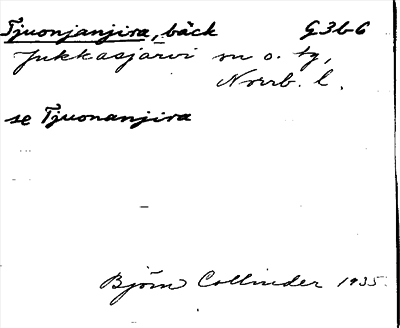 Tjuonjanjira, bäck G3b-6
Jukkasjärvi sn o. tg,
Norrb. l.
se Tjuonanjira
Björn Collinder 1935.